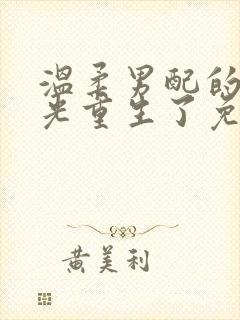 温柔男配的
光重生了免
黄美利